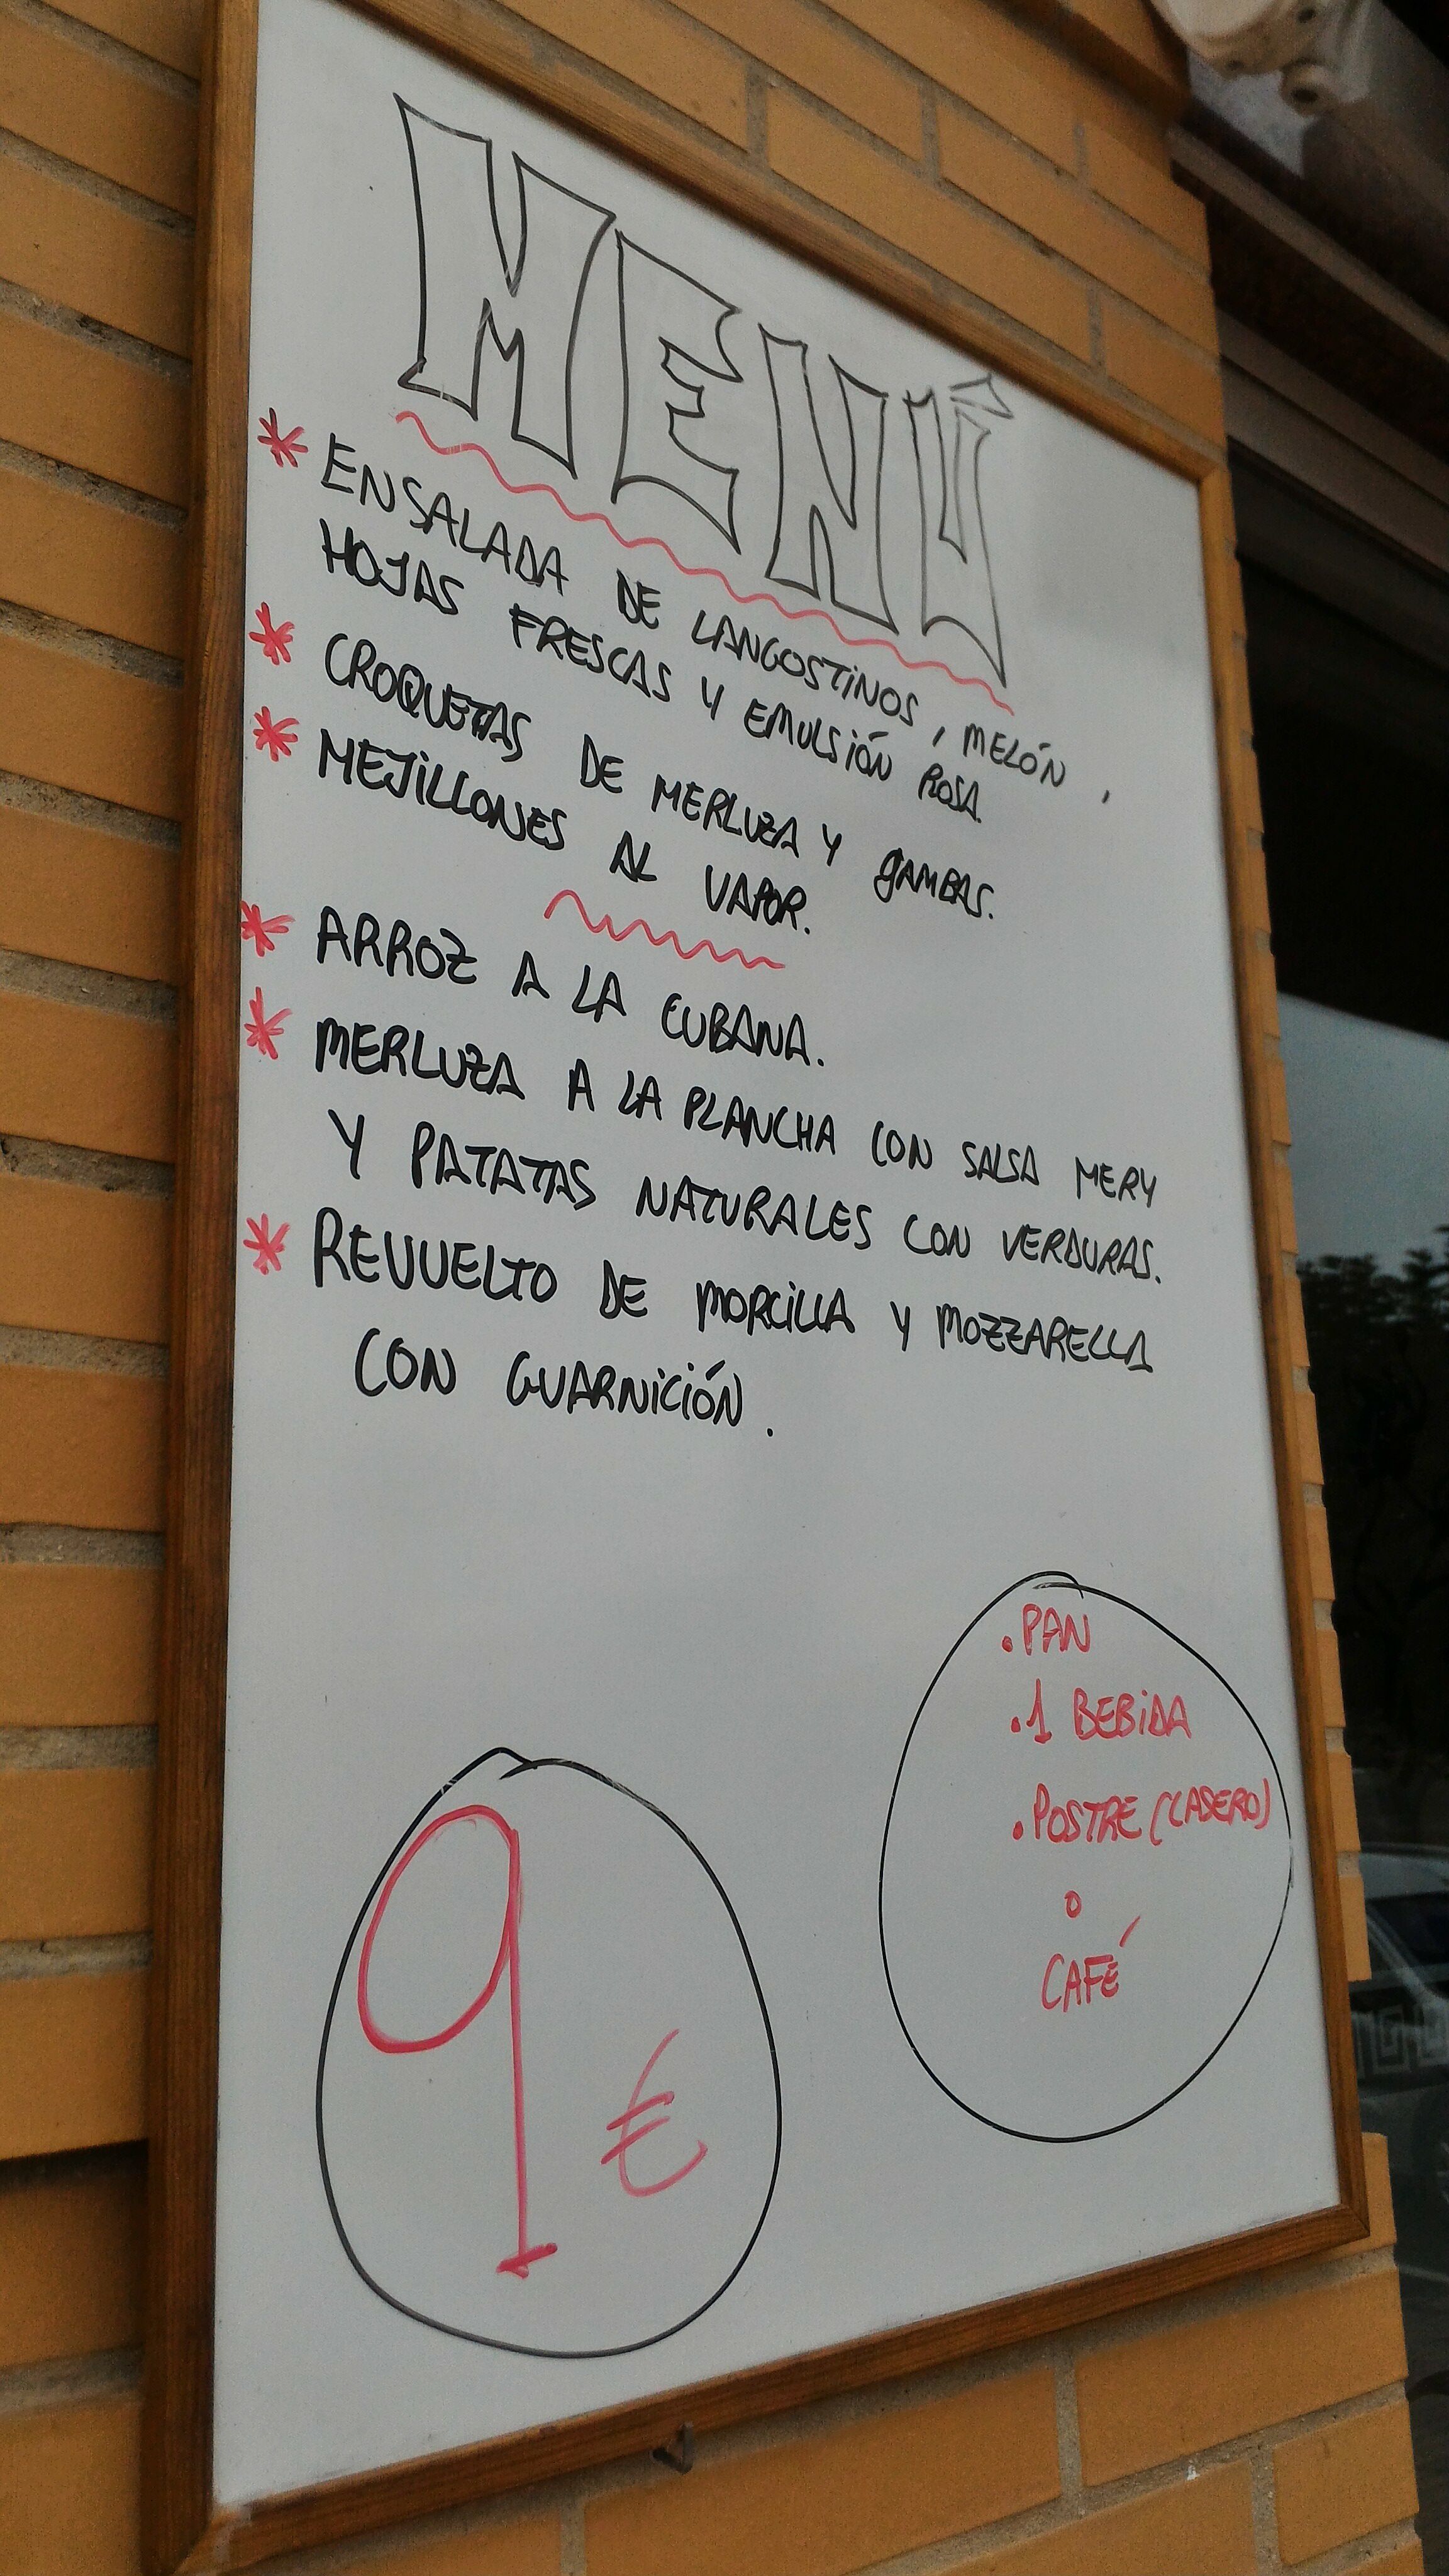 MENÚ
* ENSALADA DE LANGOSTINOS, MELÓN,
HOJAS FRESCAS Y EMULSIÓN ROSA.
* CROQUETAS DE MERLUZA Y GAMBAS.
* MEJILLONES AL VAPOR.
* ARROZ A LA CUBANA.
* MERLUZA A LA PLANCHA CON SALSA MERY
Y PATATAS NATURALES CON VERDURAS.
* REVUELTO DE MORCILLA Y MOZZARELLA
CON GUARNICIÓN.
. PAN
. 1 BEBIDA
. POSTRE (CASERO)
O
CAFÉ
9 €